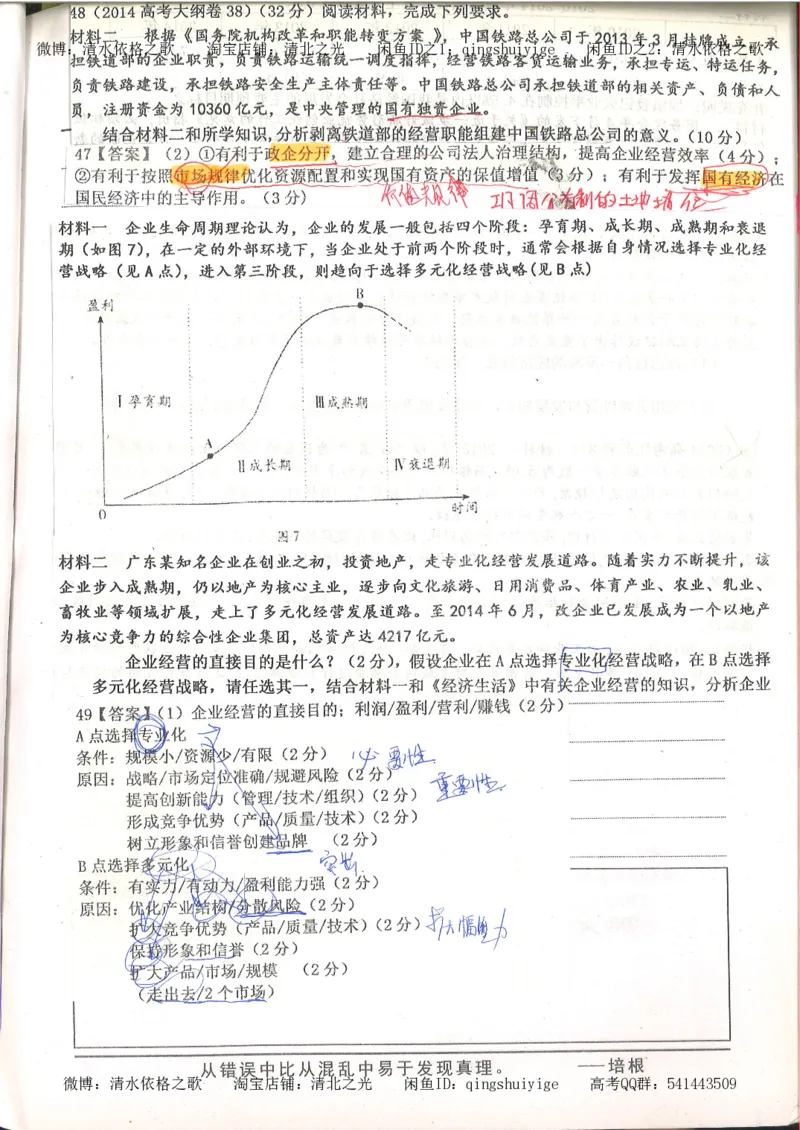 48（2014高考大纲卷38）（32分）阅读材料，完成下列要求。
材料二  根据《国务院机构改革和职能转变方案》，中国铁路总公司于2013年3月挂牌成立，承
微博：清水依格之歌  淘宝店铺：清北之光  闲鱼ID之1：qingshuiyige  闲鱼ID之2：清水依格之歌
担铁道部的企业职责，负责铁路运输统一调度指挥，经营铁路客货运输业务，承担专运、特运任务，
负责铁路建设，承担铁路安全生产主体责任等。中国铁路总公司承担铁道部的相关资产、负债和人
员，注册资金为10360亿元，是中央管理的国有独资企业。
结合材料二和所学知识,分析剥离铁道部的经营职能组建中国铁路总公司的意义。(10分)
47【答案】（2）①有利于政企分开，建立合理的公司法人治理结构，提高企业经营效率（4分）；
②有利于按照市场规律优化资源配置和实现国有资产的保值增值（3分）；有利于发挥国有经济在
国民经济中的主导作用。（3分）
价值规律
材料一  企业生命周期理论认为，企业的发展一般包括四个阶段：孕育期、成长期、成熟期和衰退
期（如图7），在一定的外部环境下，当企业处于前两个阶段时，通常会根据自身情况选择专业化经
营战略（见A点），进入第三阶段，则趋向于选择多元化经营战略(见B点)
盈利
B
Ⅰ孕育期
Ⅲ成熟期
A
Ⅱ成长期
Ⅳ衰退期
0
时间
图7
材料二  广东某知名企业在创业之初，投资地产，走专业化经营发展道路。随着实力不断提升，该
企业步入成熟期，仍以地产为核心主业，逐步向文化旅游、日用消费品、体育产业、农业、乳业、
畜牧业等领域扩展，走上了多元化经营发展道路。至2014年6月，改企业已发展成为一个以地产
为核心竞争力的综合性企业集团，总资产达4217亿元。
企业经营的直接目的是什么？（2分），假设企业在A点选择专业化经营战略，在B点选择
多元化经营战略，请任选其一，结合材料一和《经济生活》中有关企业经营的知识，分析企业
49【答案】（1）企业经营的直接目的；利润/盈利/营利/赚钱（2分）
A点选择专业化
条件：规模小/资源少/有限（2分）
必要性
原因：战略/市场定位准确/规避风险（2分）
重要性
提高创新能力（管理/技术/组织）（2分）
形成竞争优势（产品/质量/技术）（2分）
树立形象和信誉创建品牌  （2分）
B点选择多元化
条件：有实力/有动力/盈利能力强（2分）
原因：优化产业结构/分散风险（2分）
扩大竞争优势（产品/质量/技术）（2分）
保持形象和信誉（2分）
扩大产品/市场/规模  （2分）
（走出去/2个市场）
从错误中比从混乱中易于发现真理。  ——培根
微博：清水依格之歌  淘宝店铺：清北之光  闲鱼ID：qingshuiyige  高考QQ群：541443509